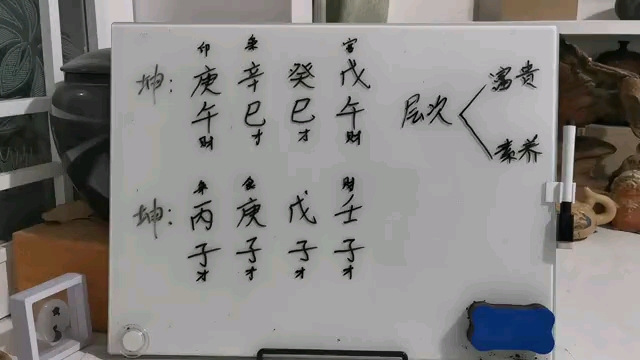 印 枭 官
坤: 庚 辛 癸 戊
午 巳 巳 午
财 才 才 财
枭 食 财
坤: 丙 庚 戊 壬
子 子 子 子
才 才 才 才
层次
富贵
素养